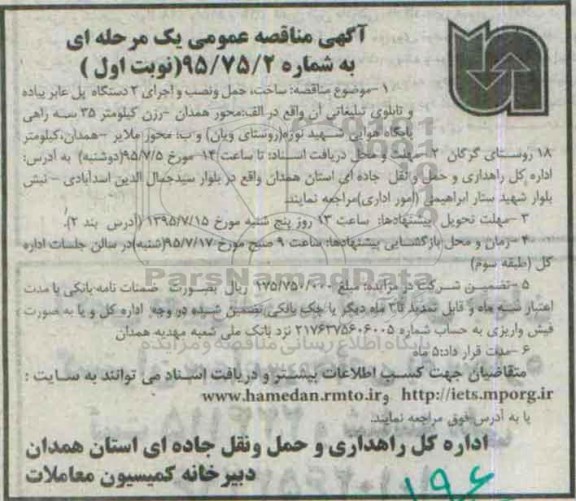 آگهی مناقصه عمومی یک مرحله ای
به شماره ۹۵/۷۵/۲(نوبت اول )
۱-موضوع مناقصه: ساخت، حمل ونصب و اجرای ۲ دستگاه پل عابر پیاده
و تابلوی تبلیغاتی آن واقع در الف:محور همدان -رزن کیلومتر ۳۵ سه راهی
پایگاه هوایی شهید نوژه(روستای ویان) و ب: محور ملایر -همدان،کیلومتر
۱۸ روستای گرکان ۲-مهلت و محل دریافت اسناد: تا ساعت ۱۴ مورخ ۹۵/۷/۵(دوشنبه) به آدرس:
اداره کل راهداری و حمل ونقل جاده ای استان همدان واقع در بلوار سیدجمال الدین اسدآبادی - نبش
بلوار شهید ستار ابراهیمی (امور اداری)مراجعه نمایند.
۳-مهلت تحویل پیشنهادها: ساعت ۱۳ روز پنج شنبه مورخ ۱۳۹۵/۷/۱۵ (آدرس بند ۲).
۴-زمان و محل بازگشایی پیشنهادها: ساعت ۹ صبح مورخ ۹۵/۷/۱۷(شنبه)در سالن جلسات اداره
کل (طبقه سوم)
۵-تضمین شرکت در مزایده: مبلغ ۱۷۵/۷۵۰/۰۰۰ ریال بصورت ضمانت نامه بانکی با مدت
اعتبار سه ماه و قابل تمدید تا۳ ماه دیگر یا چک بانکی تضمین شده در وجه اداره کل و یا به صورت
فیش واریزی به حساب شماره ۲۱۷۶۳۷۵۶۰۶۰۰۵ نزد بانک ملی شعبه مهدیه همدان
۶-مدت قرار داد:۵ ماه
متقاضیان جهت کسب اطلاعات بیشتر و دریافت اسناد می توانند به سایت :
http://iets.mporg.ir و www.hamedan.rmto.ir
یا به آدرس فوق مراجعه نمایند.
اداره کل راهداری و حمل ونقل جاده ای استان همدان
دبیرخانه کمیسیون معاملات
۱۹۶
ParsNamadData
پایگاه اطلاع رسانی مناقصه و مزایده